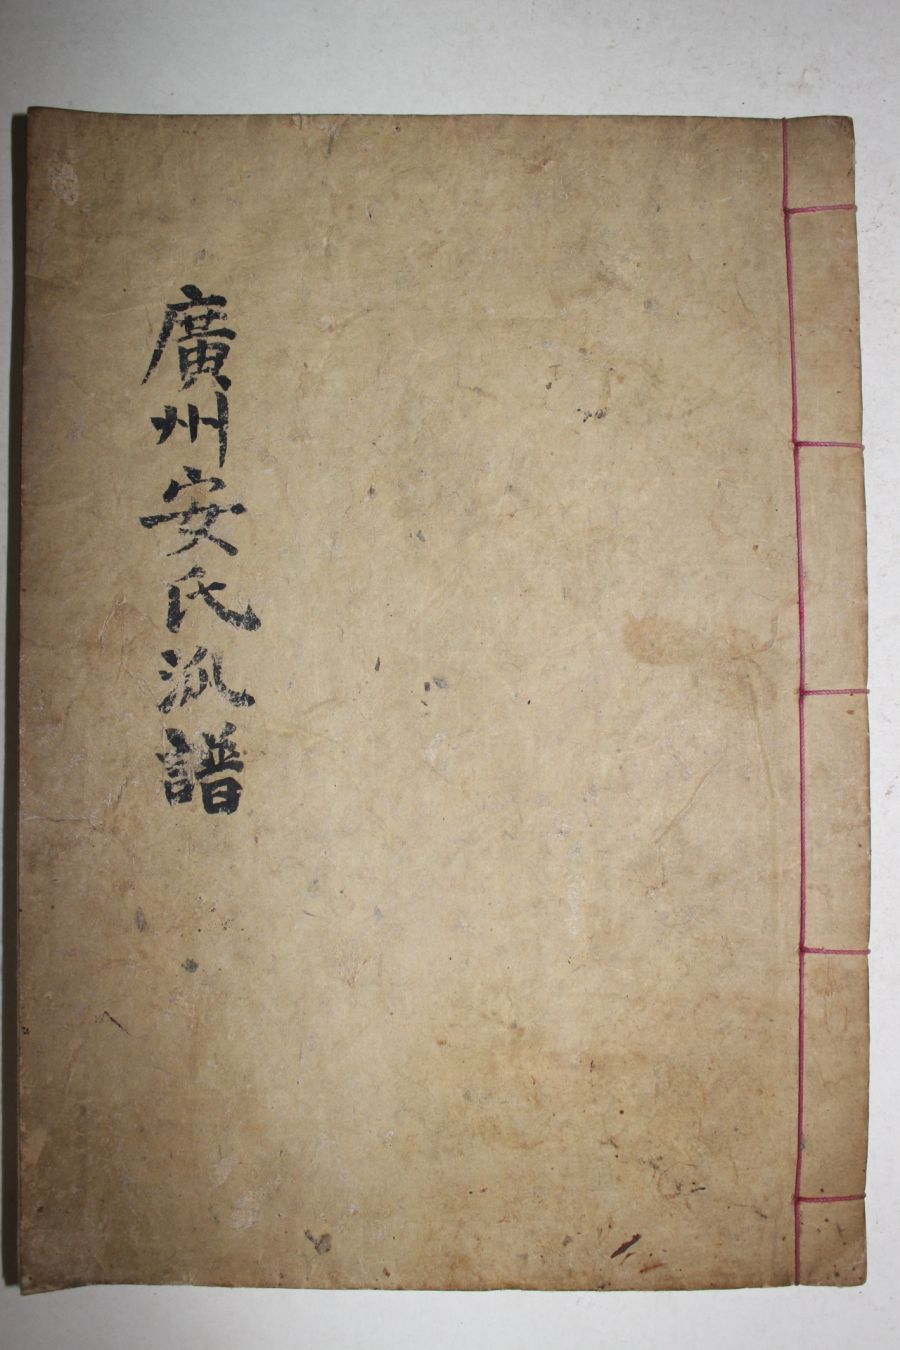 廣州安氏派譜